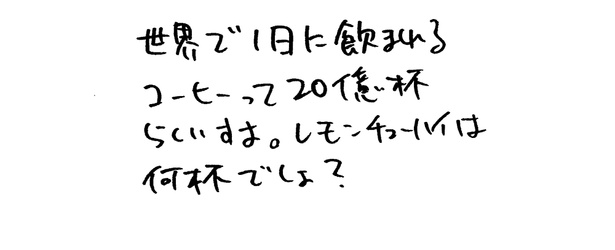 世界で1日に飲まれる
コーヒーって20億杯
らしいすよ。レモンチューハイは
何杯でしょ?